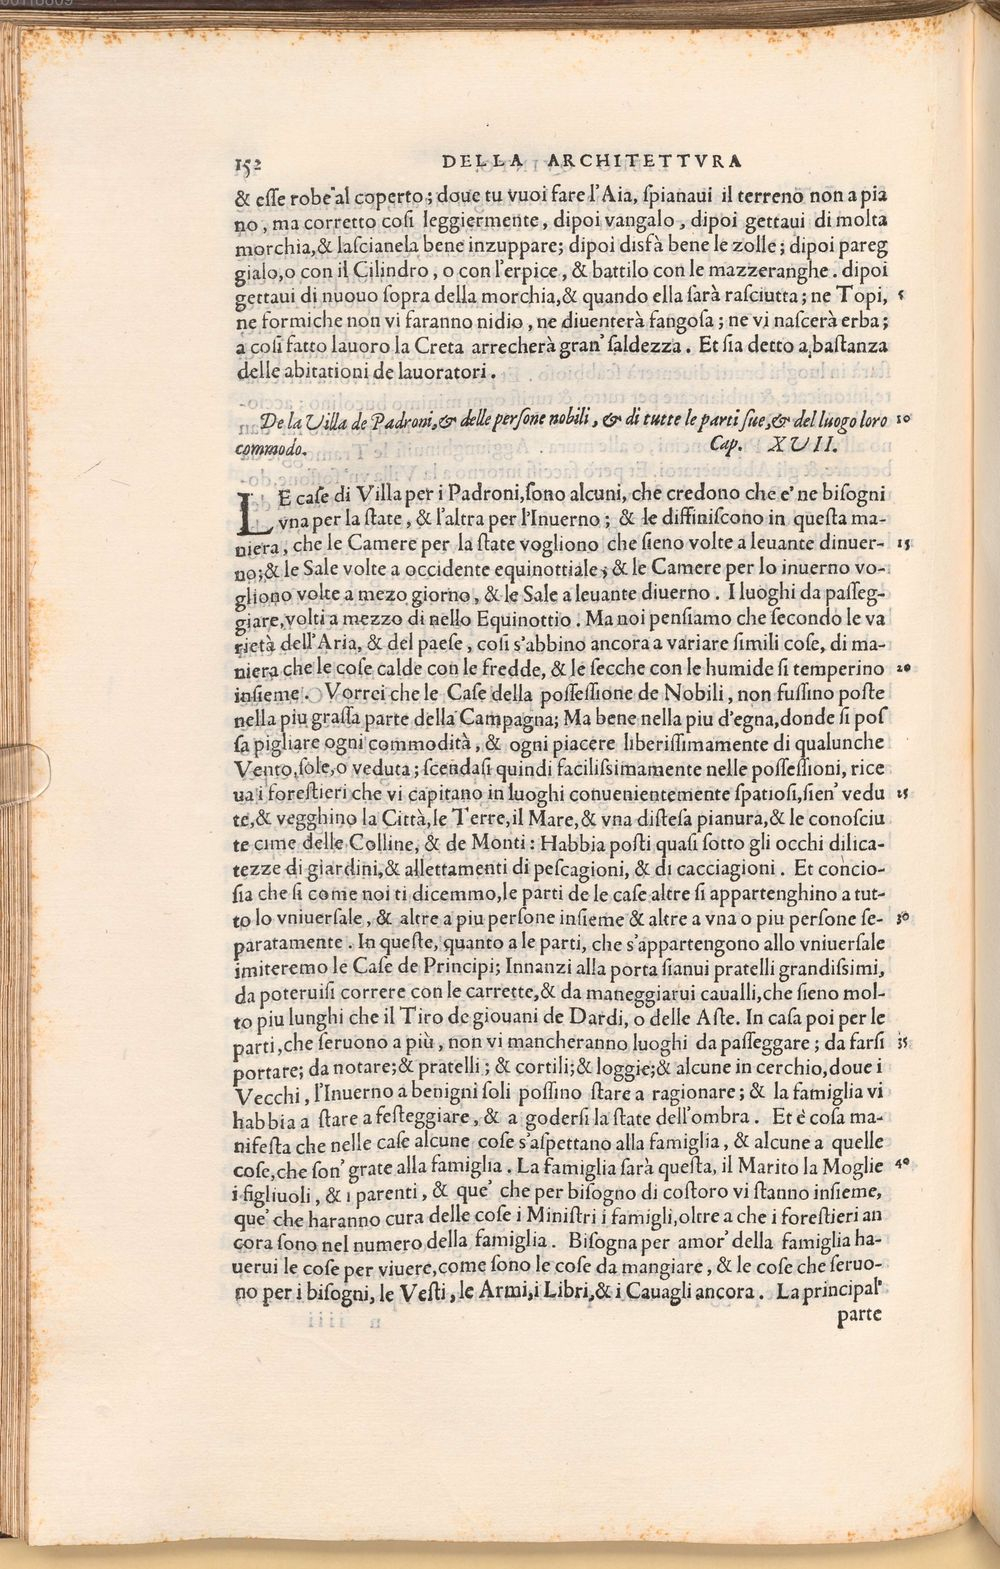 152 DELLA ARCHITETTVRA
& eſſe robe al coperto; doue tu vuoi fare l'Aia, ſpianaui il terreno non a pia
no, ma corretto coſi leggiermente, dipoi vangalo, dipoi gettaui di molta
morchia, & laſcianela bene inzuppare; dipoi disfà bene le zolle; dipoi pareg
gialo, o con il Cilindro, o con l'erpice, & battilo con le mazzeranghe. dipoi
gettaui di nuouo ſopra della morchia, & quando ella ſarà raſciutta; ne Topi, 5
ne formiche non vi faranno nidio, ne diuenterà fangoſa; ne vi naſcerà erba;
a coſi fatto lauoro la Creta arrecherà gran' ſaldezza. Et ſia detto a baſtanza
delle abitationi de lauoratori.
De la Villa de Padroni, & delle perſone nobili, & di tutte le parti ſue, & del luogo loro 10
commodo. Cap. XVII.
LE caſe di Villa per i Padroni, ſono alcuni, che credono che e' ne biſogni
vna per la ſtate, & l'altra per l'Inuerno; & le diffiniſcono in queſta ma-
niera, che le Camere per la ſtate vogliono che ſieno volte a leuante dinuer- 15
no; & le Sale volte a occidente equinottiale; & le Camere per lo inuerno vo-
gliono volte a mezo giorno, & le Sale a leuante diuerno. I luoghi da paſſeg-
giare, volti a mezzo di nello Equinottio. Ma noi penſiamo che ſecondo le va
rietà dell'Aria, & del paeſe, coſi s'abbino ancora a variare ſimili coſe, di ma-
niera che le coſe calde con le fredde, & le ſecche con le humide ſi temperino 20
inſieme. Vorrei che le Caſe della poſſeſſione de Nobili, non fuſſino poſte
nella piu graſſa parte della Campagna; Ma bene nella piu d'egna, donde ſi poſ
ſa pigliare ogni commodità, & ogni piacere liberiſſimamente di qualunche
Vento, ſole, o veduta; ſcendaſi quindi faciliſsimamente nelle poſſeſſioni, rice
ua i foreſtieri che vi capitano in luoghi conuenientemente ſpatioſi, ſien' vedu 25
te, & vegghino la Città, le Terre, il Mare, & vna diſteſa pianura, & le conoſciu
te cime delle Colline, & de Monti: Habbia poſti quaſi ſotto gli occhi dilica-
tezze di giardini, & allettamenti di peſcagioni, & di cacciagioni. Et concio-
ſia che ſi come noi ti dicemmo, le parti de le caſe altre ſi appartenghino a tut-
to lo vniuerſale, & altre a piu perſone inſieme & altre a vna o piu perſone ſe- 30
paratamente. In queſte, quanto a le parti, che s'appartengono allo vniuerſale
imiteremo le Caſe de Principi; Innanzi alla porta ſianui pratelli grandiſsimi,
da poteruiſi correre con le carrette, & da maneggiarui caualli, che ſieno mol-
to piu lunghi che il Tiro de giouani de Dardi, o delle Aſte. In caſa poi per le
parti, che ſeruono a più, non vi mancheranno luoghi da paſſeggare; da farſi 35
portare; da notare; & pratelli; & cortili; & loggie; & alcune in cerchio, doue i
Vecchi, l'Inuerno a benigni ſoli poſſino ſtare a ragionare; & la famiglia vi
habbia a ſtare a feſteggiare, & a goderſi la ſtate dell'ombra. Et è coſa ma-
nifeſta che nelle caſe alcune coſe s'aſpettano alla famiglia, & alcune a quelle
coſe, che ſon' grate alla famiglia. La famiglia ſarà queſta, il Marito la Moglie 40
i figliuoli, & i parenti, & que' che per biſogno di coſtoro vi ſtanno inſieme,
que' che haranno cura delle coſe i Miniſtri i famigli, oltre a che i foreſtieri an
cora ſono nel numero della famiglia. Biſogna per amor' della famiglia ha-
uerui le coſe per viuere, come ſono le coſe da mangiare, & le coſe che ſeruo-
no per i biſogni, le Veſti, le Armi, i Libri, & i Cauagli ancora. La principal'
parte